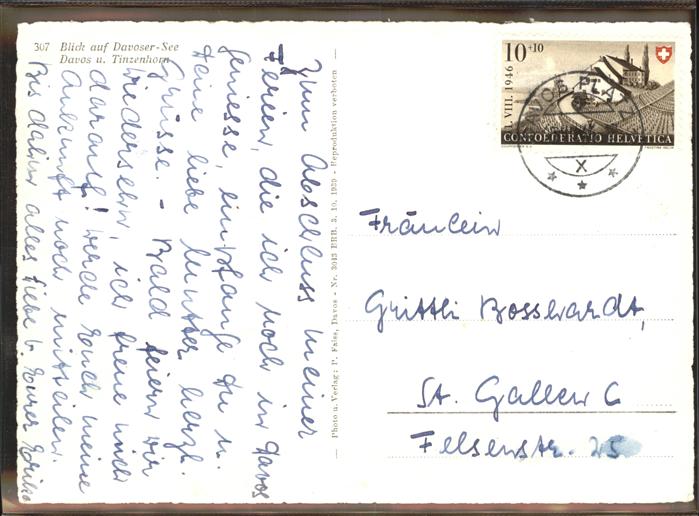 307 Blick auf Davoser-See
Davos u. Tinzenhorn
Zum Abschluss meiner
Ferien, die ich noch in Davos
geniesse, empfange Du u.
Deine liebe Mutter herzl.
Grüsse. - Bald feiern wir
Wiedersehn, ich freue mich
darauf! Werde Euch meine
Ankunft noch mitteilen.
Bis dahin alles Liebe v. Eurer Erika
Photo u. Verlag: P. Faiss, Davos - Nr. 3043 BRB. 3. 10. 1939 - Reproduktion verboten
10+10
1. VIII. 1946
CONFOEDERATIO HELVETICA
DAVOS PLATZ
X
Fräulein
Grittli Bosshardt,
St. Gallen C
Felsenstr. 25